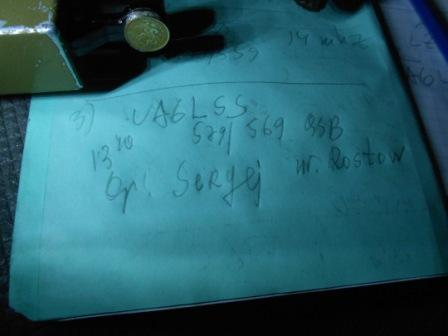 /559 14 mhz
3) UA6LSS
13¹⁰ 579/569 SSB
Op. Sergej nr. Rostow